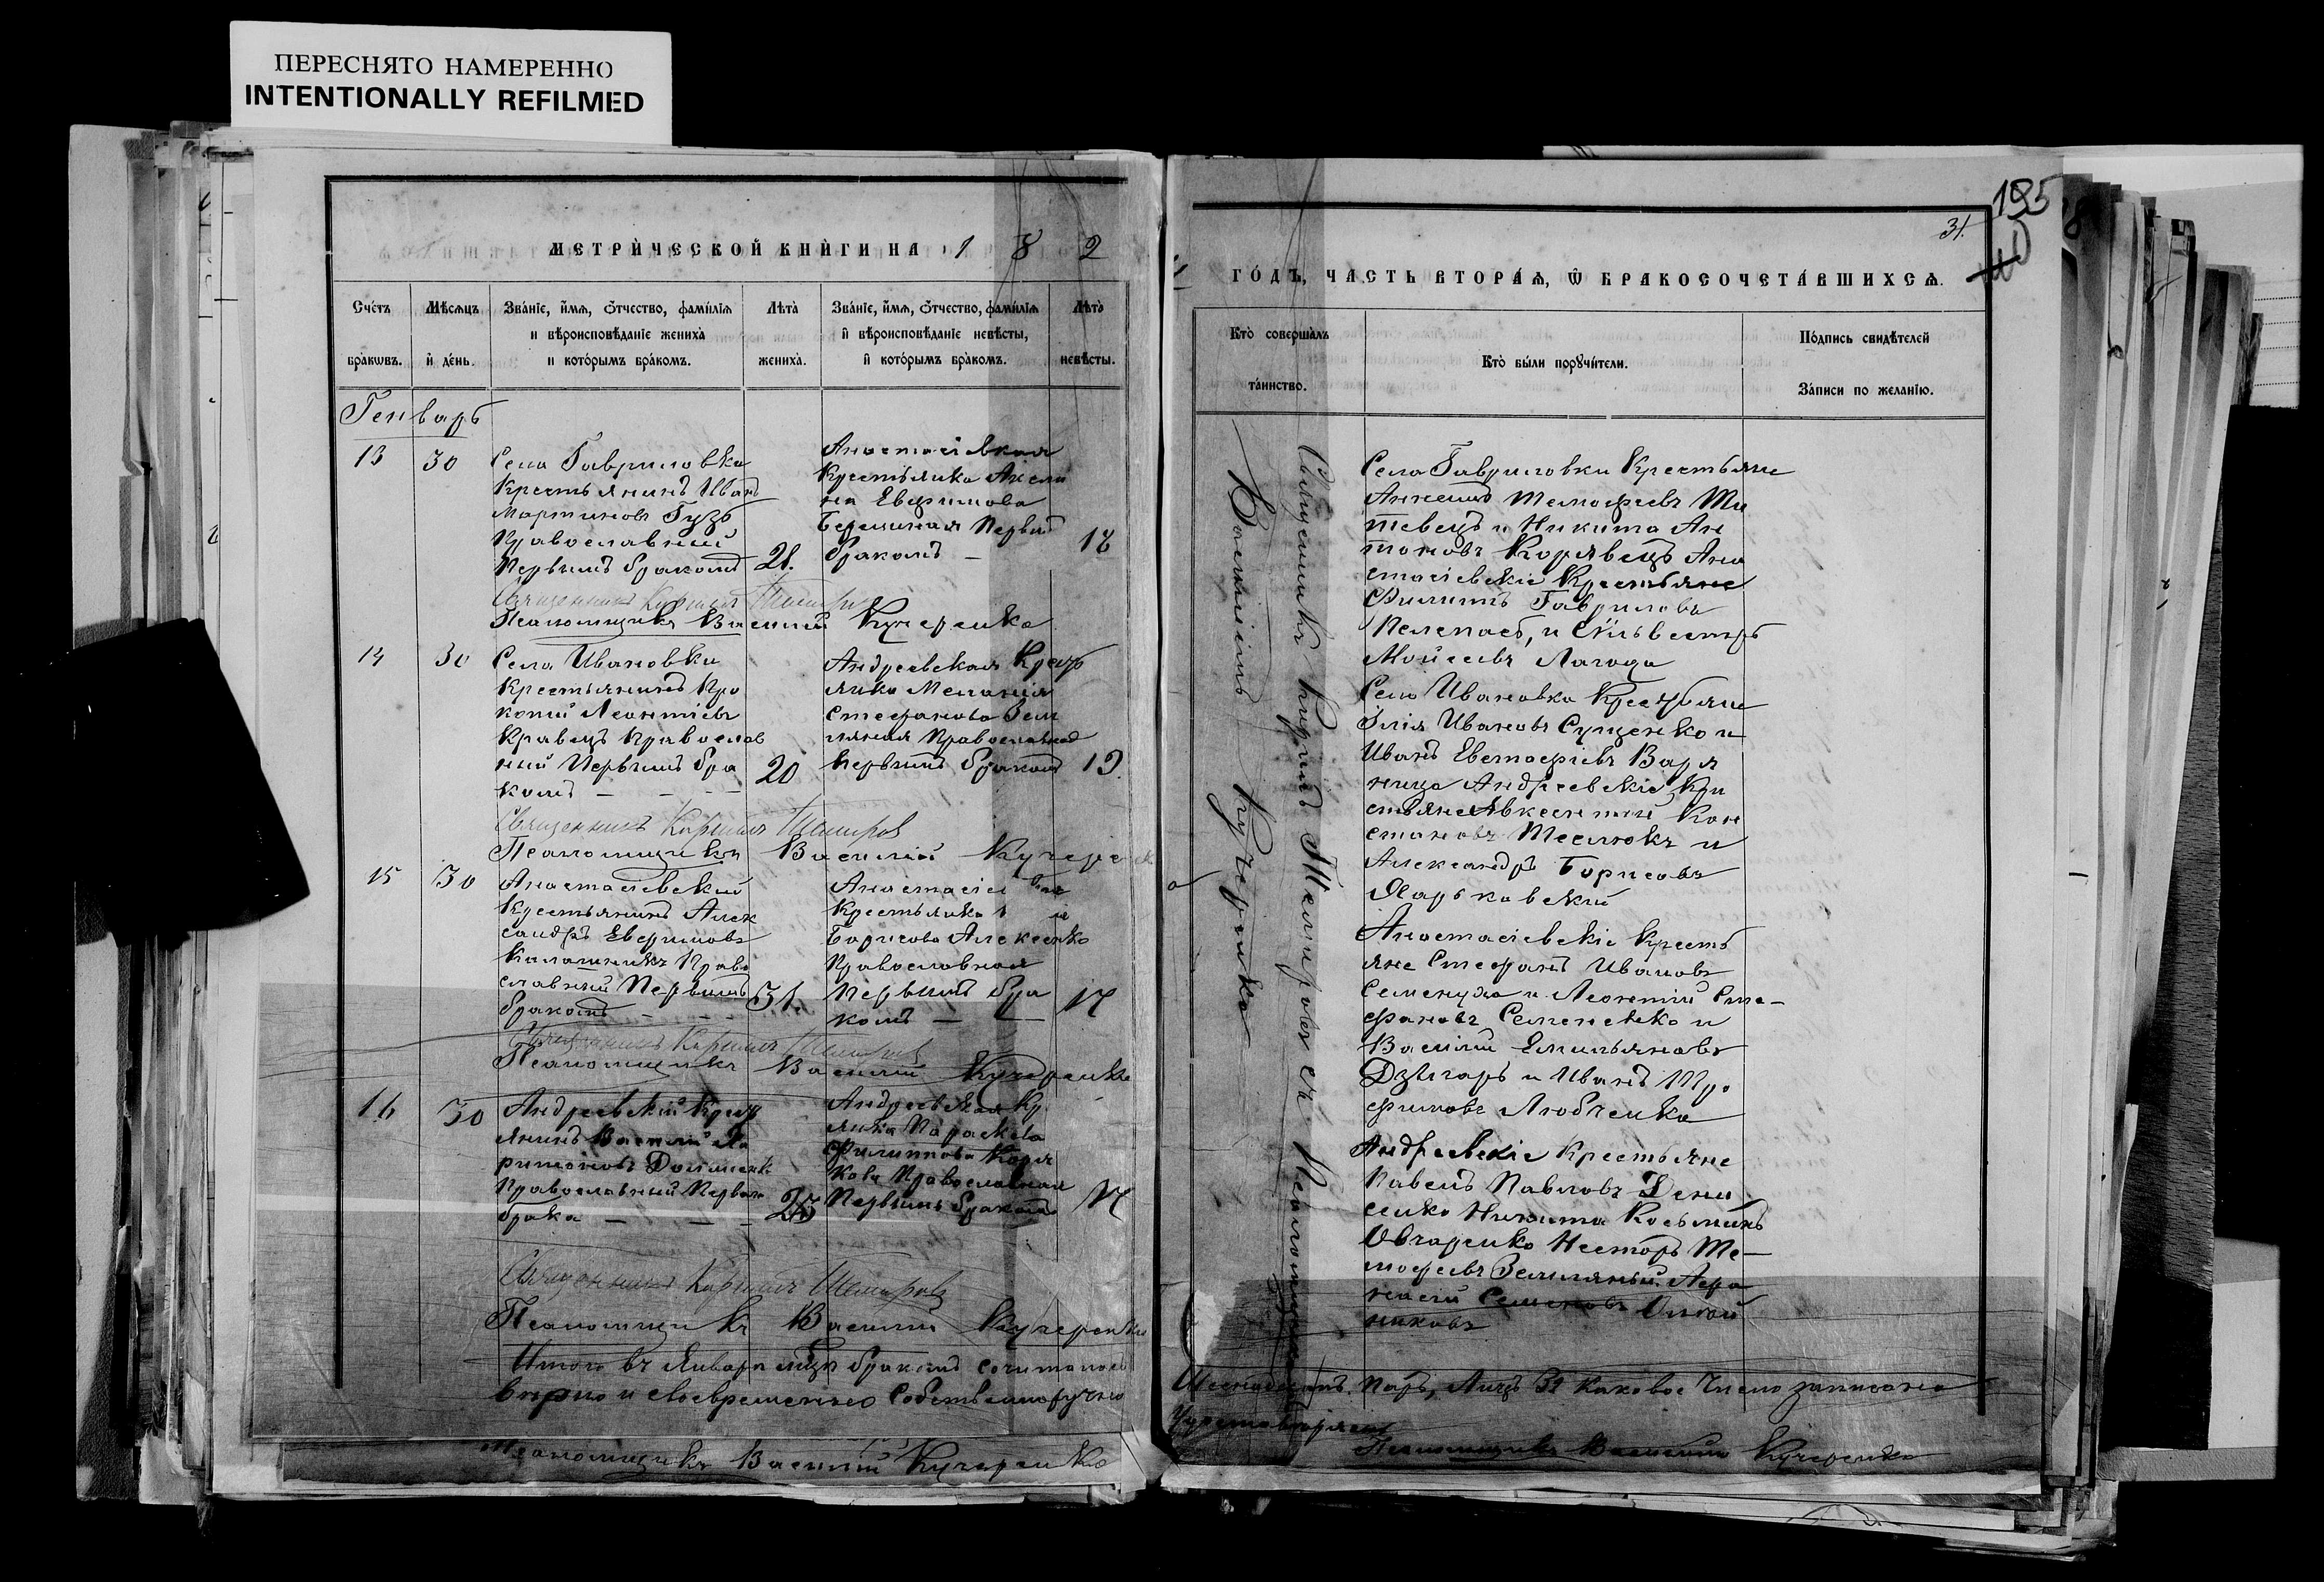 ПЕРЕСНЯТО НАМЕРЕННО
INTENTIONALLY REFILMED
МЕТРИЧЕСКОЙ КНИГИ НА 1 8 2
Счетъ браковъ.
Мѣсяцъ и день.
Званіе, имя, отчество, фамилія и вѣроисповѣданіе жениха и которымъ бракомъ.
Лѣта жениха.
Званіе, имя, отчество, фамилія и вѣроисповѣданіе невѣсты, и которымъ бракомъ.
Лѣта невѣсты.
Генварь
13 30
Села Гавриловки
Крестьянинъ Иванъ
Мартиновъ Гузь
Православный
Первымъ бракомъ 21.
Анастасіевская
Крестьянка
на Евфимова
Первымъ
бракомъ — 18
Священникъ Кириллъ
Псаломщикъ Василий Кучеренко
14 30
Села Ивановки
Крестьянинъ Про
копий Леонтіевъ
Кравецъ Православ
ный Первымъ бра 20
комъ — — —
Андреевская Крест
янка Меланія
Стефанова Зем
ляная Православная
Первымъ бракомъ 19
Священникъ Кириллъ
Псаломщикъ Василій Кучерен
15 30
Анастасіевский
Крестьянинъ Алек
сандръ Евфимовъ
Калашникъ Право
славный Первымъ 31
бракомъ — —
Анастасіев
Крестьянка
Борисова Алексенко
Православная
Первымъ бра 17
комъ — —
Священникъ Кириллъ
Псаломщикъ Василий Кучеренко
16 30
Андреевский Крест
янинъ Василий Ха
ритоновъ
Православный Первымъ
брака — — 25
Андреевская Кр
янка Параскева
Филиппова
Православная
Первымъ бракомъ 17
Священникъ Кириллъ
Псаломщикъ Василий Кучеренко
Итого въ Январѣ мцѣ бракомъ сочиталось
вѣрно и своевременно Собственноручно
Псаломщикъ Василій Кучеренко
195
31.
ГОДЪ, ЧАСТЬ ВТОРАЯ, Ѡ БРАКОСОЧЕТАВШИХСЯ.
Кто совершалъ таинство.
Кто были поручители.
Подпись свидѣтелей записи по желанію.
Священникъ Кирилъ съ Псаломщикомъ
Василіемъ Кучеренко
Села Гавриловки Крестьяне
Тимофеевъ
и Никита Ан
тоновъ Корявецъ Ана
стасіевскіе Крестьяне
Филипъ Гавриловъ
Пелепасъ, и Сильвестръ
Мойсеевъ Лагода
Села Ивановки Крестьяне
Илія Ивановъ Сущенко и
Иванъ Евстафіевъ Варя
ница Андреевскіе Кре
стьяне Авксентий Кон
становъ Теслюкъ и
Александръ Борисовъ
Харьковский
Анастасіевскіе Кресть
яне Стефанъ Ивановъ
Семенуха и Леонтий Сте-
фановъ Семененко и
Василий Емильяновъ
Дзыгарь и Иванъ Тро
фимовъ Любченко
Андреевскіе Крестьяне
Павелъ Павловъ Дени
сенко Никита Косьминъ
Овчаренко Несторъ Ти—
мофеевъ Земляный Афа
насий Семеновъ
никовъ
Шестнадцать Паръ, Лицъ 32 Каковое Число записано
Удостовѣряетъ
Псаломщикъ Василий Кучеренко